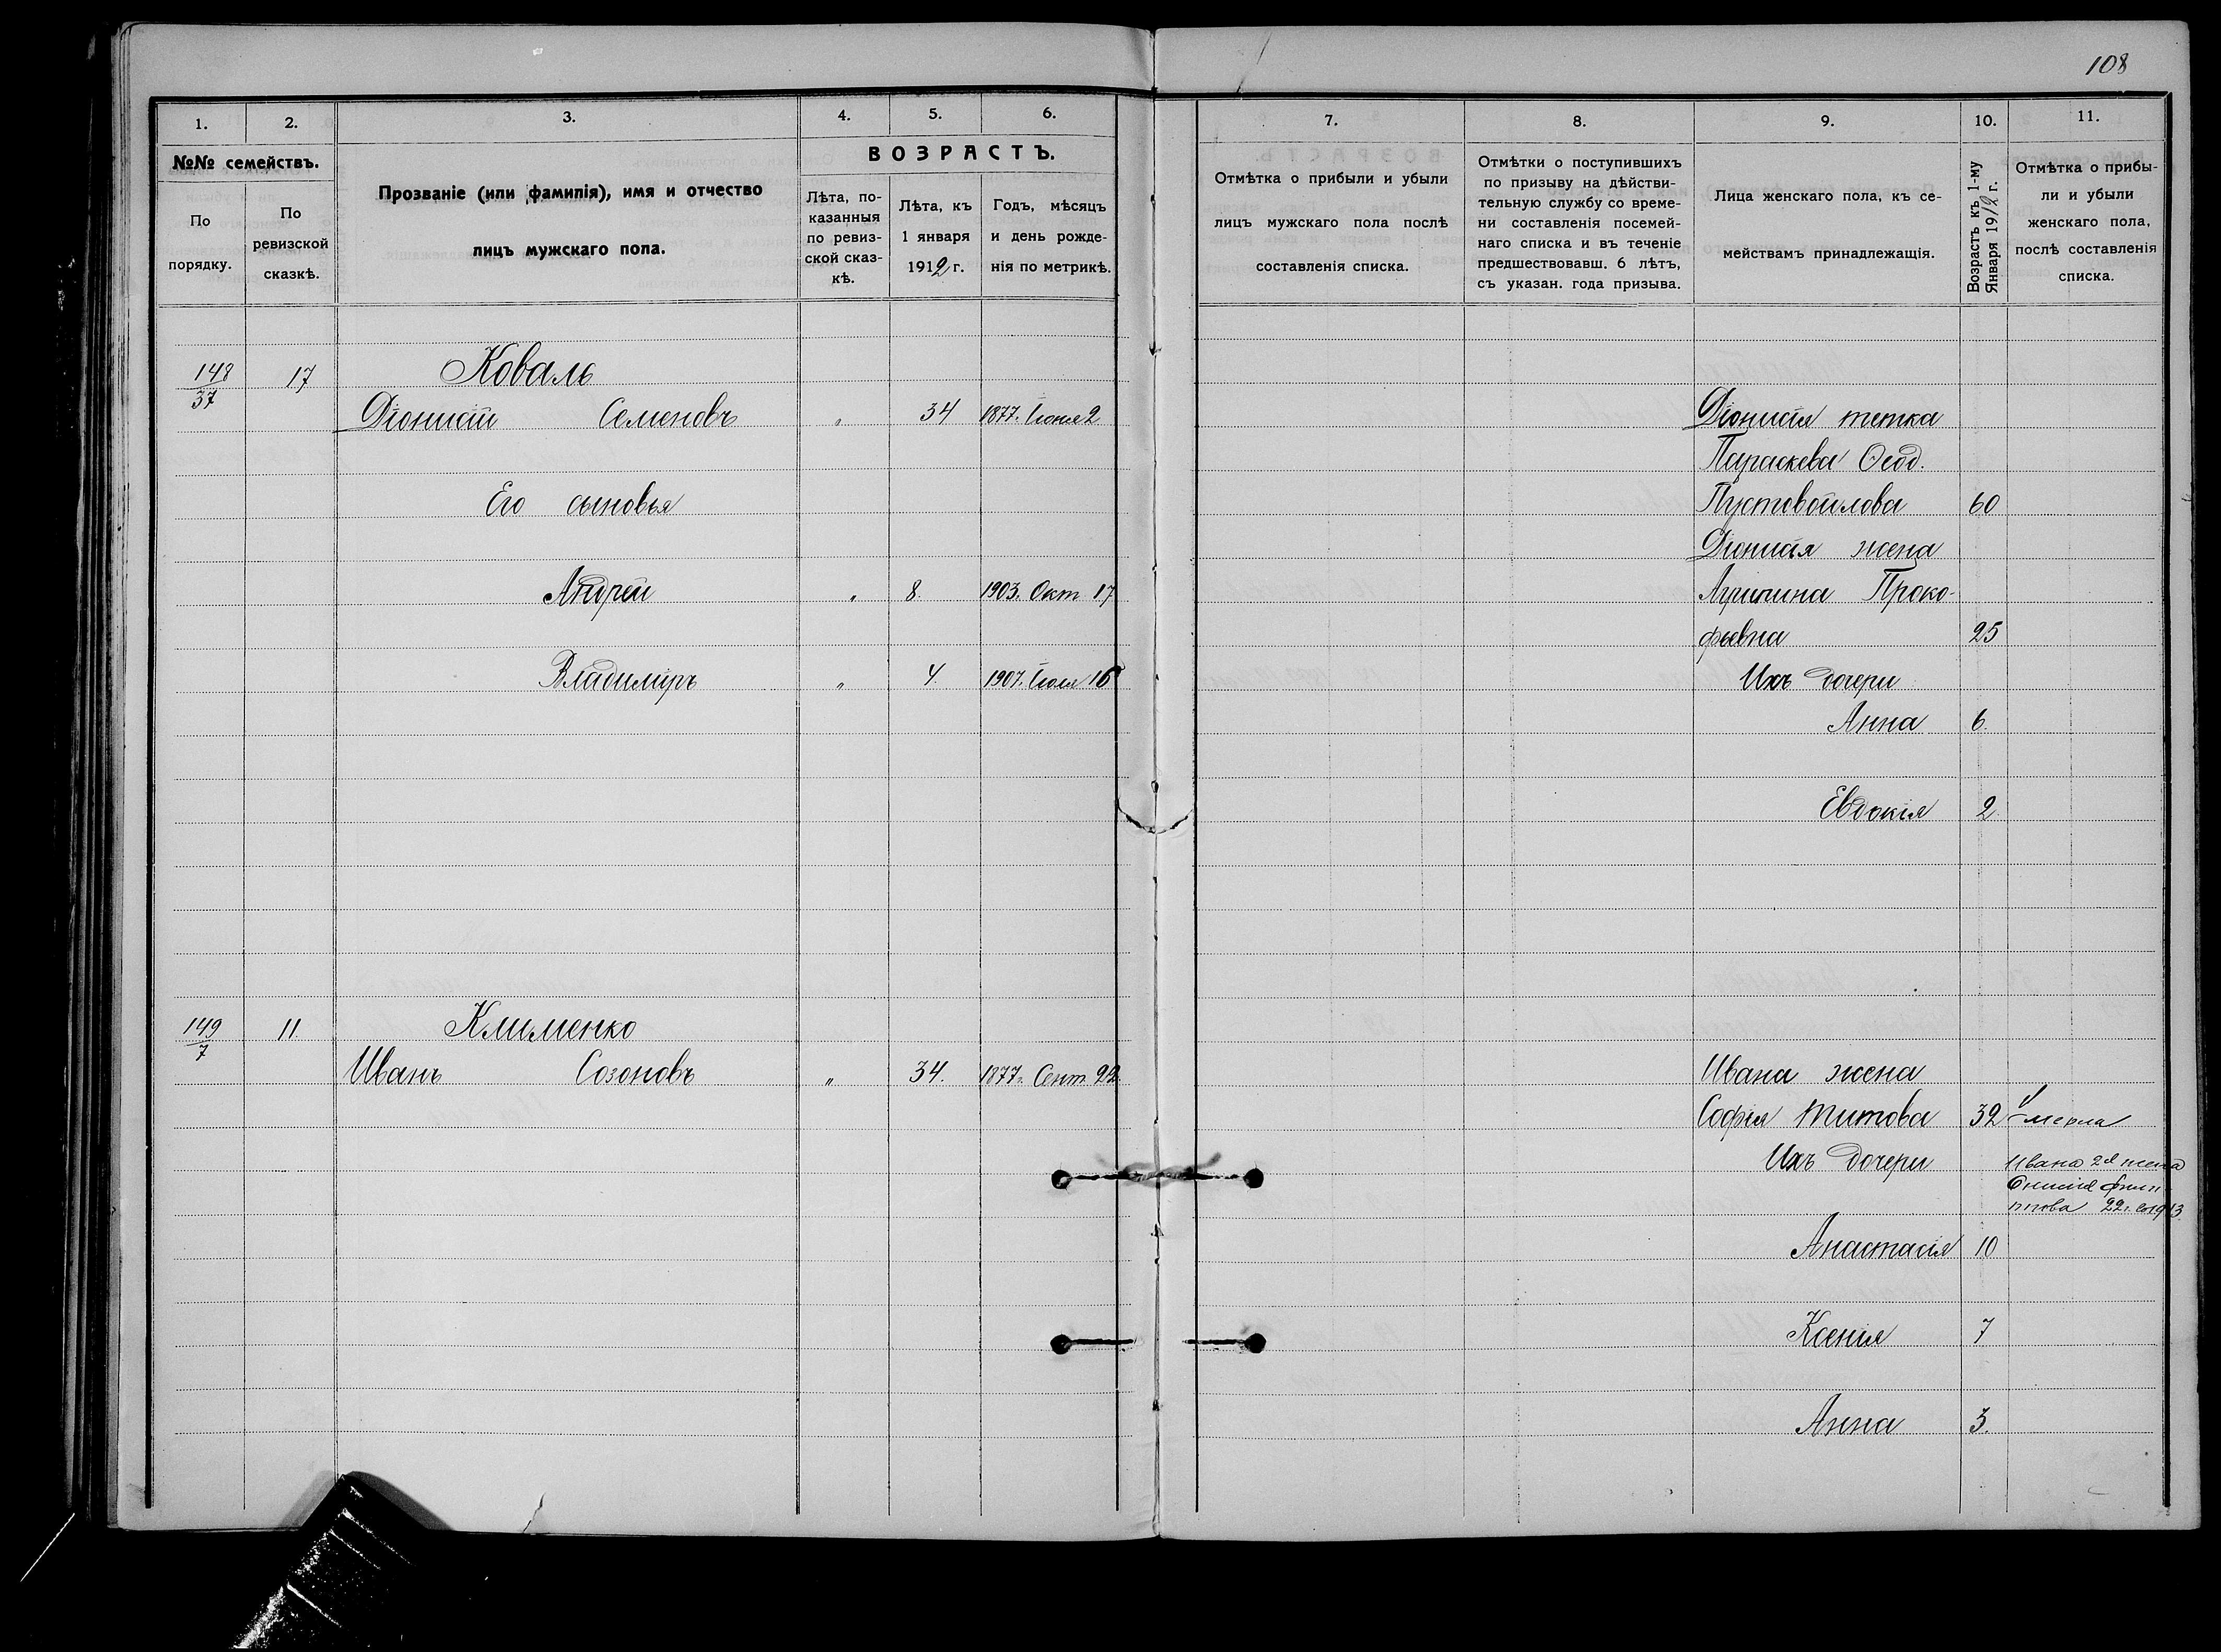 108
1.
2.
3.
4.
5.
6.
№№ семействъ.
По порядку.
По ревизской сказкѣ.
Прозваніе (или фамилія), имя и отчество
лицъ мужскаго пола.
ВОЗРАСТЪ.
Лѣта, по-
казанныя
по ревиз-
ской сказ-
кѣ.
Лѣта, къ
1 января
1912 г.
Годъ, мѣсяцъ
и день рожде-
нія по метрикѣ.
148/37 17 Коваль
Діонисій Семеновъ " 34 1877. Іюня 2
Его сыновья
Андрей " 8. 1903. Окт 17
Владиміръ " 4. 1907. Іюля 16
149/7 11. Клименко
Иванъ Созоновъ " 34. 1877. Сент. 22.
7.
8.
9.
10.
11.
Отмѣтка о прибыли и убыли
лицъ мужскаго пола послѣ
составленія списка.
Отмѣтки о поступившихъ
по призыву на дѣйстви-
тельную службу со време-
ни составленія посемей-
наго списка и въ теченіе
предшествовавш. 6 лѣтъ,
съ указан. года призыва.
Лица женскаго пола, къ се-
мействамъ принадлежащія.
Возрастъ къ 1-му
Января 1912 г.
Отмѣтка о прибы-
ли и убыли
женскаго пола,
послѣ составленія
списка.
Діонисія тетка
Параскева Ѳеод.
Пустовойлова 60
Діонисія жена
Проко-
фьевна 25
Ихъ дочери
Анна 6.
Евдокія 2
Ивана жена
Софія Титова 32 Умерла
Ихъ дочери
Ивана 2я жена
Филип
пова 22 г. 1913
Анастасія 10
Ксенія 7
Анна 3.